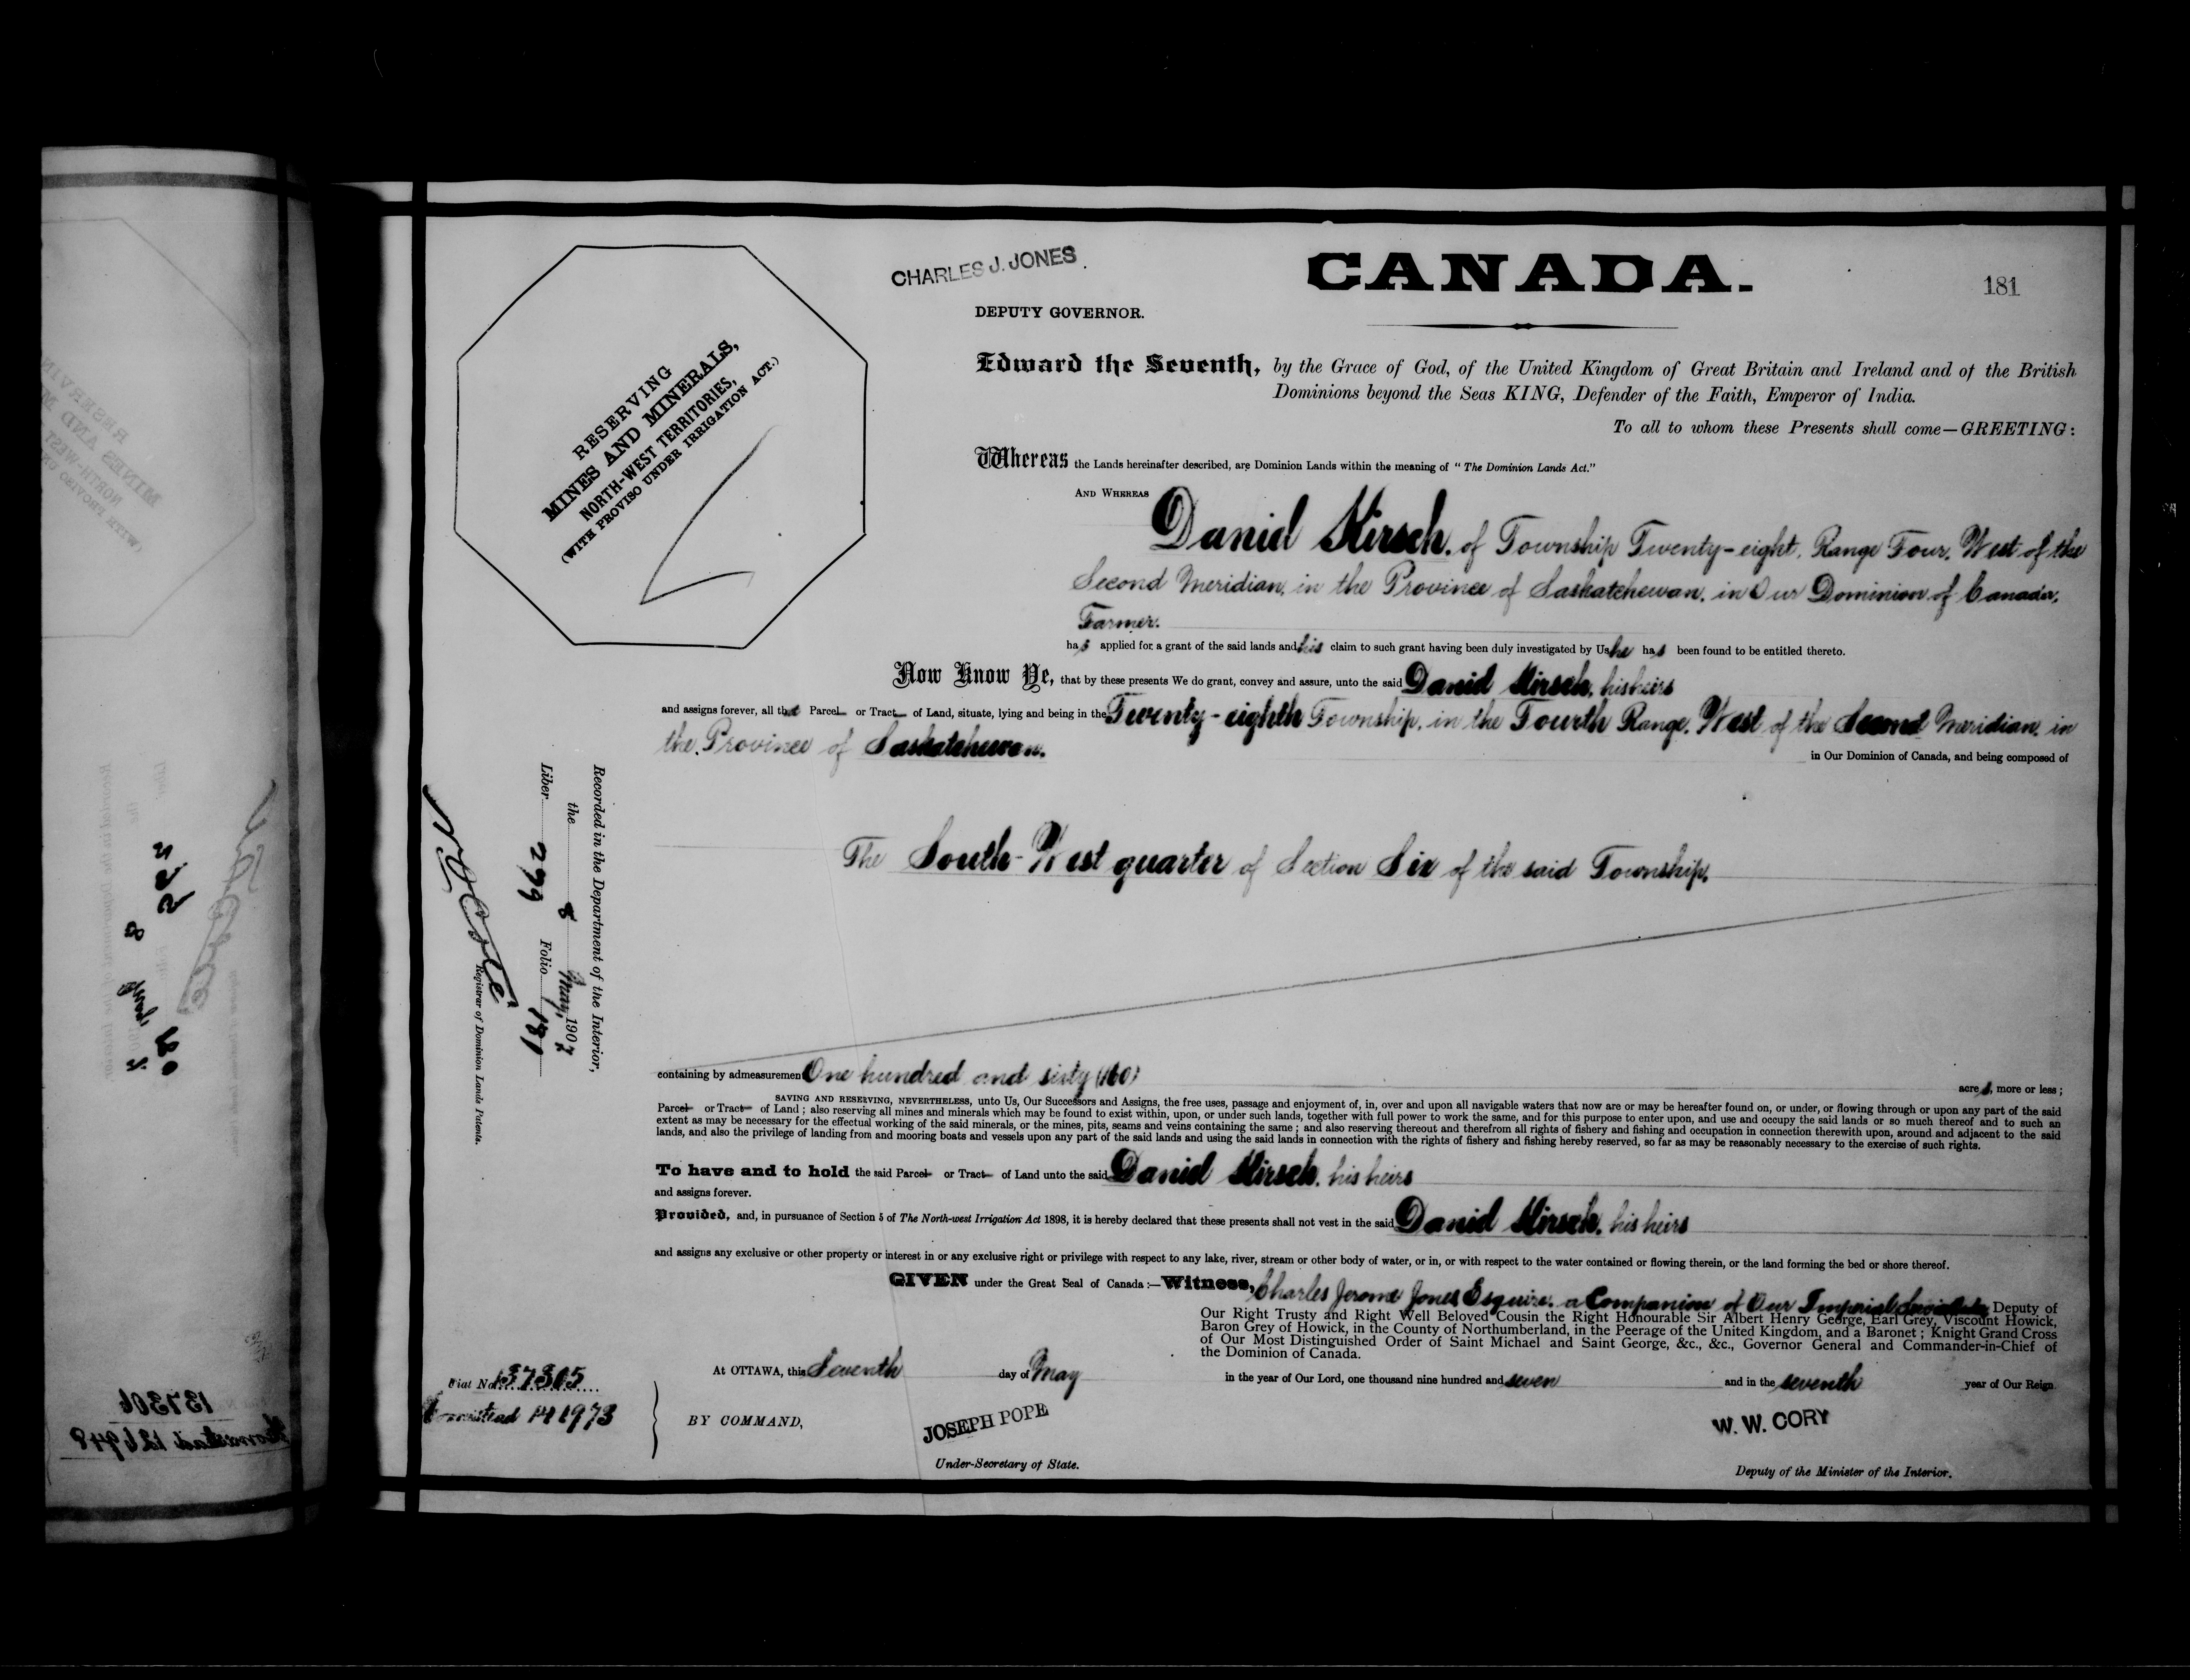 CHARLES J. JONES
DEPUTY GOVERNOR.
CANADA.
181
RESERVING
MINES AND MINERALS,
NORTH-WEST TERRITORIES,
(WITH PROVISO UNDER IRRIGATION ACT.)
Edward the Seventh, by the Grace of God, of the United Kingdom of Great Britain and Ireland and of the British
Dominions beyond the Seas KING, Defender of the Faith, Emperor of India.
To all to whom these Presents shall come—GREETING:
Whereas the Lands hereinafter described, are Dominion Lands within the meaning of "The Dominion Lands Act."
AND WHEREAS
Daniel Kirsch, of Township Twenty-eight, Range Four, West of the
Second Meridian, in the Province of Saskatchewan, in Our Dominion of Canada,
Farmer.
has applied for a grant of the said lands and his claim to such grant having been duly investigated by Us he has been found to be entitled thereto.
Now Know Ye, that by these presents We do grant, convey and assure, unto the said Daniel Kirsch, his heirs
and assigns forever, all that Parcel or Tract of Land, situate, lying and being in the Twenty-eighth Township, in the Fourth Range, West of the Second Meridian, in
the Province of Saskatchewan.
in Our Dominion of Canada, and being composed of
The South-West quarter of Section Six of the said Township.
Recorded in the Department of the Interior,
the 8 May, 1907
Liber 299 Folio 181
Registrar of Dominion Lands Patents.
containing by admeasurement One hundred and sixty (160) acres, more or less;
SAVING AND RESERVING, NEVERTHELESS, unto Us, Our Successors and Assigns, the free uses, passage and enjoyment of, in, over and upon all navigable waters that now are or may be hereafter found on, or under, or flowing through or upon any part of the said
Parcel or Tract of Land; also reserving all mines and minerals which may be found to exist within, upon, or under such lands, together with full power to work the same, and for this purpose to enter upon, and use and occupy the said lands or so much thereof and to such an
extent as may be necessary for the effectual working of the said minerals, or the mines, pits, seams and veins containing the same; and also reserving thereout and therefrom all rights of fishery and fishing and occupation in connection therewith upon, around and adjacent to the said
lands, and also the privilege of landing from and mooring boats and vessels upon any part of the said lands and using the said lands in connection with the rights of fishery and fishing hereby reserved, so far as may be reasonably necessary to the exercise of such rights.
To have and to hold the said Parcel or Tract of Land unto the said Daniel Kirsch, his heirs
and assigns forever.
Provided, and, in pursuance of Section 5 of The North-west Irrigation Act 1898, it is hereby declared that these presents shall not vest in the said Daniel Kirsch, his heirs
and assigns any exclusive or other property or interest in or any exclusive right or privilege with respect to any lake, river, stream or other body of water, or in, or with respect to the water contained or flowing therein, or the land forming the bed or shore thereof.
GIVEN under the Great Seal of Canada:—Witness, Charles Jerome Jones Esquire, a Companion of Our Imperial Deputy of
Our Right Trusty and Right Well Beloved Cousin the Right Honourable Sir Albert Henry George, Earl Grey, Viscount Howick,
Baron Grey of Howick, in the County of Northumberland, in the Peerage of the United Kingdom, and a Baronet; Knight Grand Cross
of Our Most Distinguished Order of Saint Michael and Saint George, &c., &c., Governor General and Commander-in-Chief of
the Dominion of Canada.
At OTTAWA, this Seventh day of May in the year of Our Lord, one thousand nine hundred and seven and in the seventh year of Our Reign.
Fiat No. 137305
Homestead 141973
BY COMMAND,
JOSEPH POPE
Under-Secretary of State.
W. W. CORY
Deputy of the Minister of the Interior.
137306
Homestead 126948